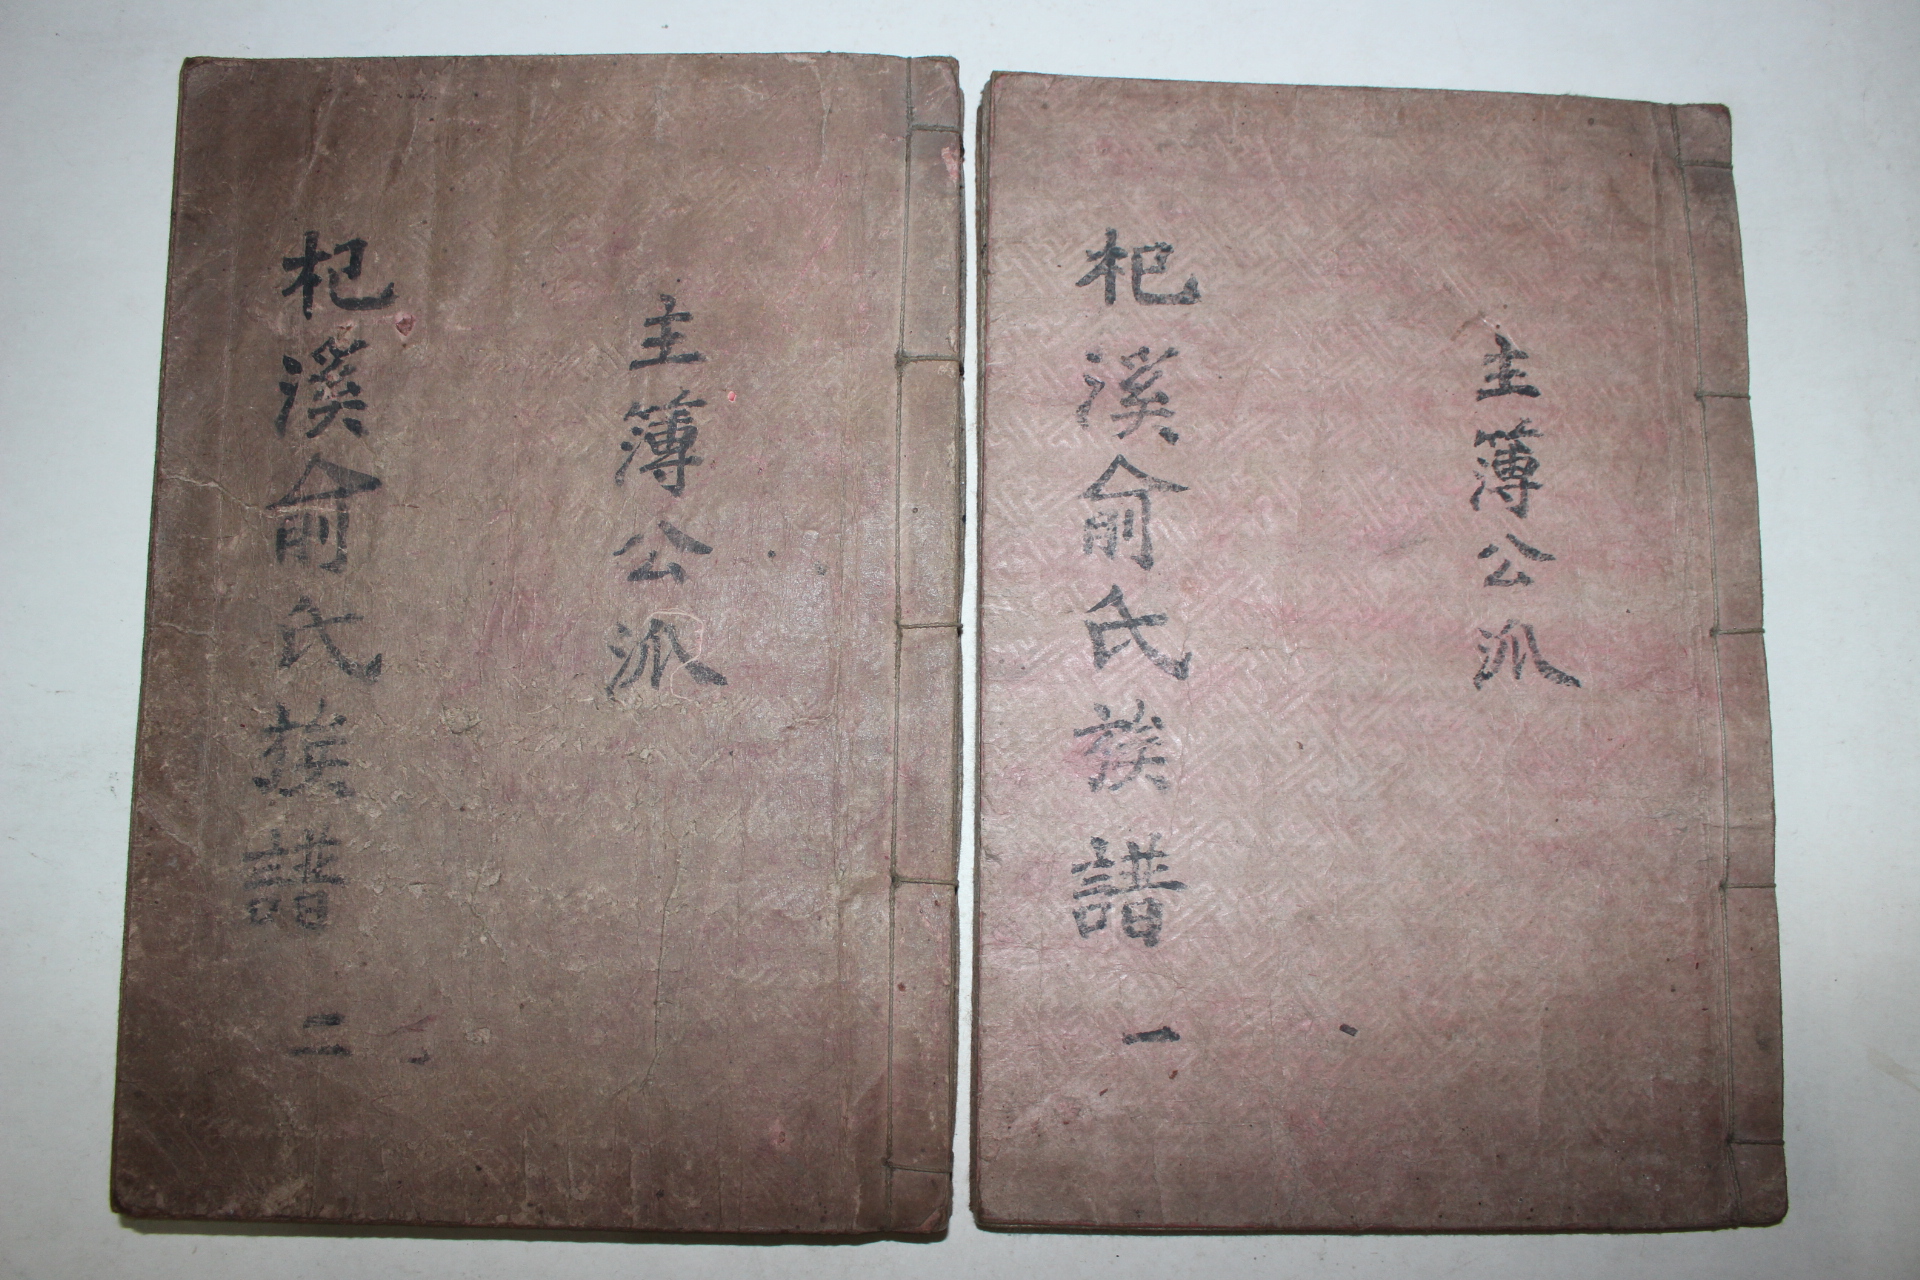 主簿公派
杞溪俞氏族譜 一
主簿公派
杞溪俞氏族譜 二